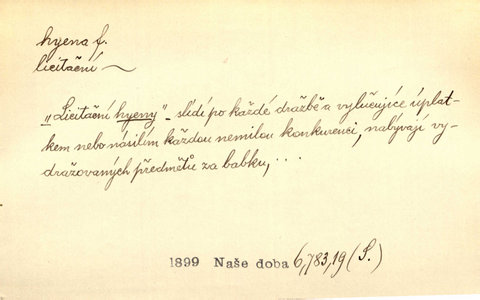 hyena f.
licitační ~
"Licitační hyeny" - slídí po každé dražbě a vylučujíce úplat-
kem nebo násilím každou nemilou konkurenci, nabývají vy-
dražovaných předmětů za babku, ...
1899 Naše doba 6,783,19 (S.)